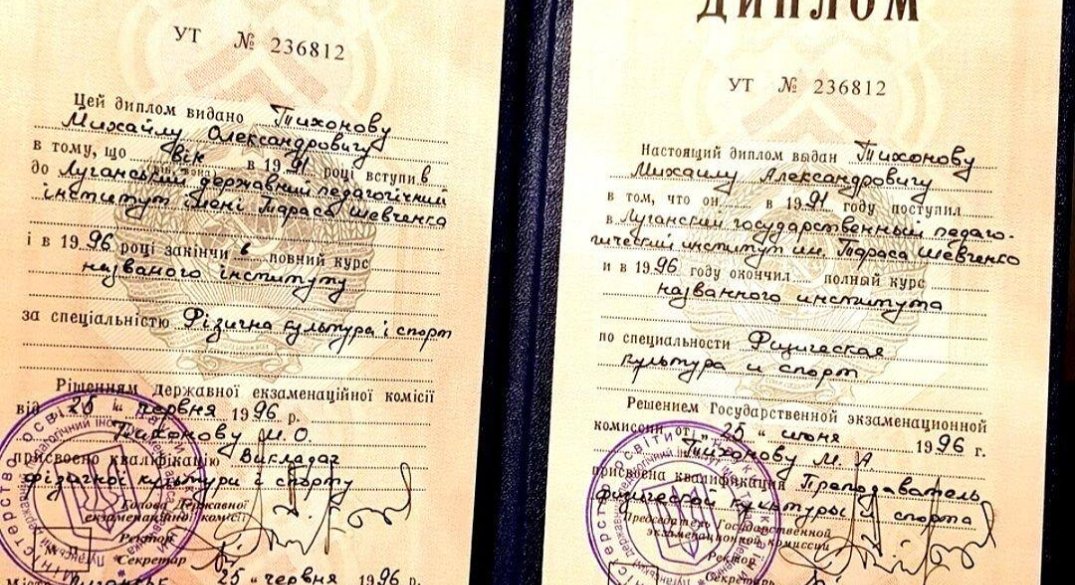 УТ № 236812
Цей диплом видано Тихонову
Михайлу Олександровичу
в тому, що він в 1991 році вступив
до Луганський державний педагогічний
інститут імені Тараса Шевченка
і в 1996 році закінчив повний курс
названого інституту
за спеціальністю Фізична культура і спорт
Рішенням Державної екзаменаційної комісії
від „25“ червня 1996 р.
Тихонову М.О.
присвоєно кваліфікацію Викладач
фізичної культури і спорту
Голова Державної
екзаменаційної комісії
Ректор
Секретар
Місто Луганськ 25 „ червня 1996 р.
ДИПЛОМ
УТ № 236812
Настоящий диплом выдан Тихонову
Михаилу Александровичу
в том, что он в 1991 году поступил
в Луганский государственный педаго-
гический институт им. Тараса Шевченко
и в 1996 году окончил полный курс
названного института
по специальности Физическая
культура и спорт
Решением Государственной экзаменационной
комиссии от „25“ июня 1996 г.
Тихонову М. А.
присвоена квалификация Преподаватель
физической культуры и спорта
Председатель Государственной
экзаменационной комиссии
Ректор
Секретарь